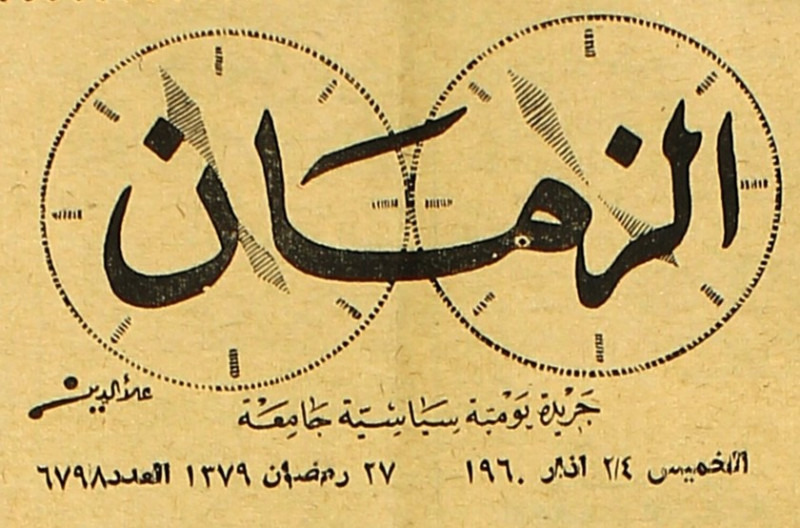 الزمان
علاء الدين
جَريدة يَوْميّة سيَاسِيّة جَامِعَة
الخميس ٢٤ اذار ١٩٦٠ ٢٧ رمضان ١٣٧٩ العدد ٦٧٩٨